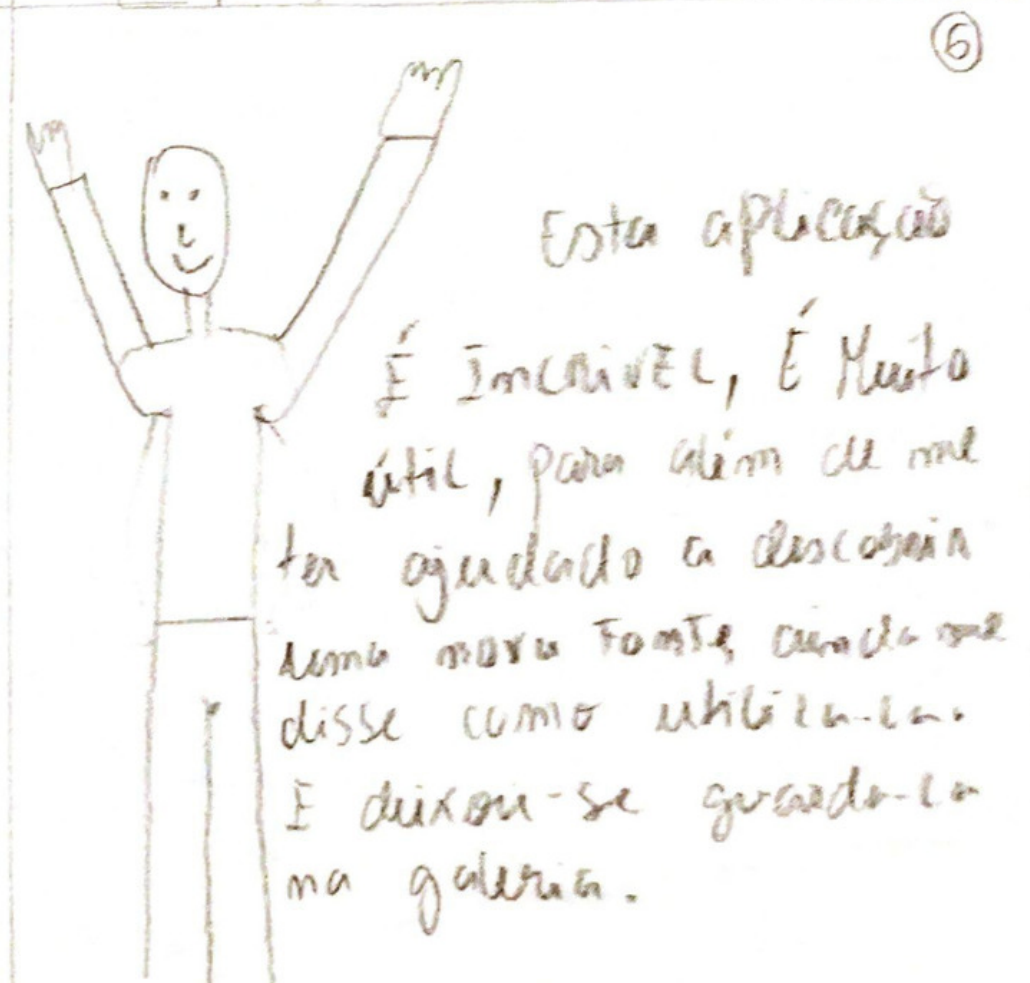 6
Esta aplicação
É IncrivEL, É Muito
útil, para além de me
ter ajudado a descobrir
uma nova Fonte, ainda me
disse como utiliza-la.
E deixou-se guarda-la
na galeria.